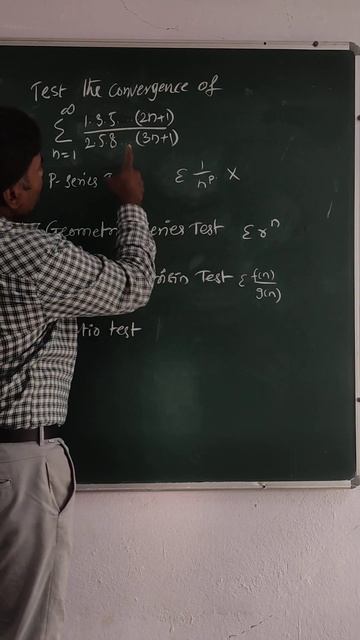 Test the convergence of
∞
Σ 1.3.5...(2n+1) / 2.5.8...(3n+1)
n=1
P-series Σ 1/n^p X
Geometric Series Test Σ r^n
Test Σ f(n)/g(n)
test